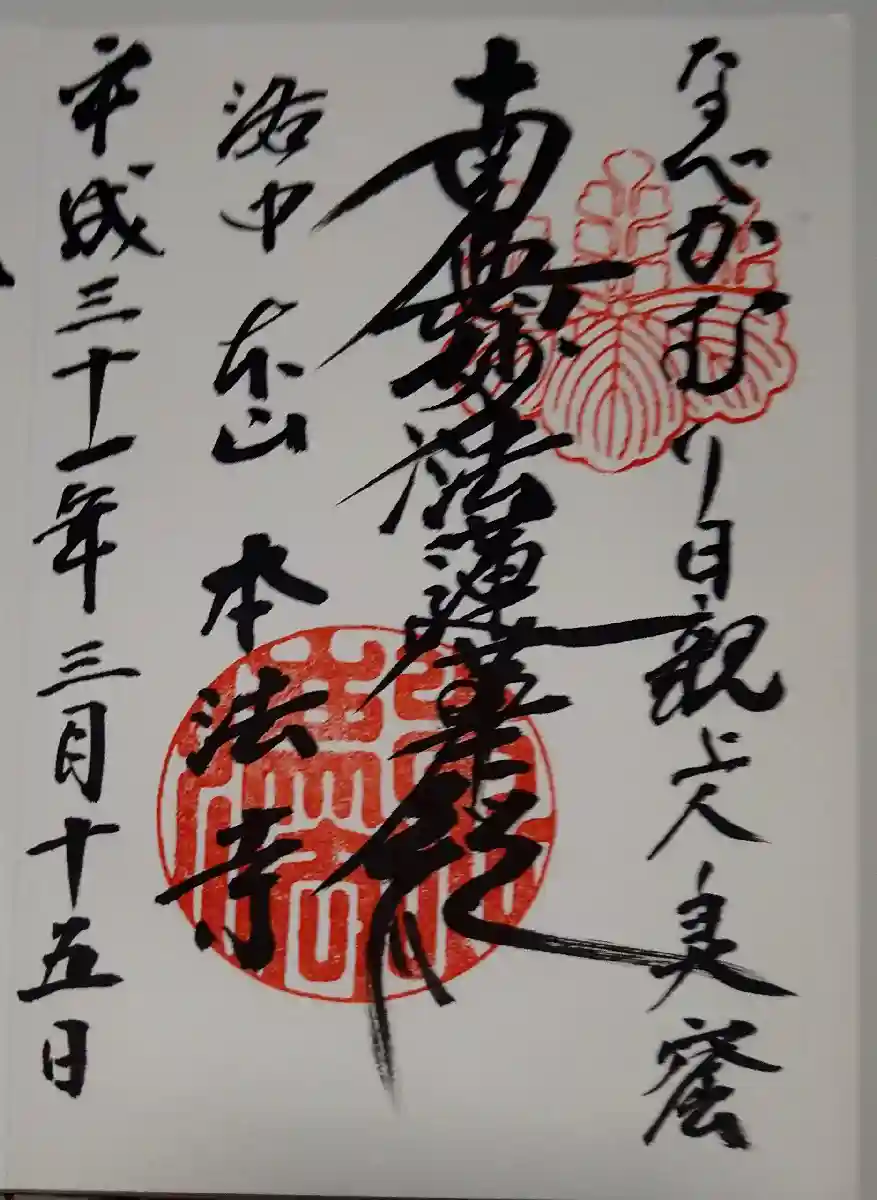 なべかむり日親上人灵窟
南無妙法蓮華経
洛中 本山 本法寺
平成三十一年三月十五日